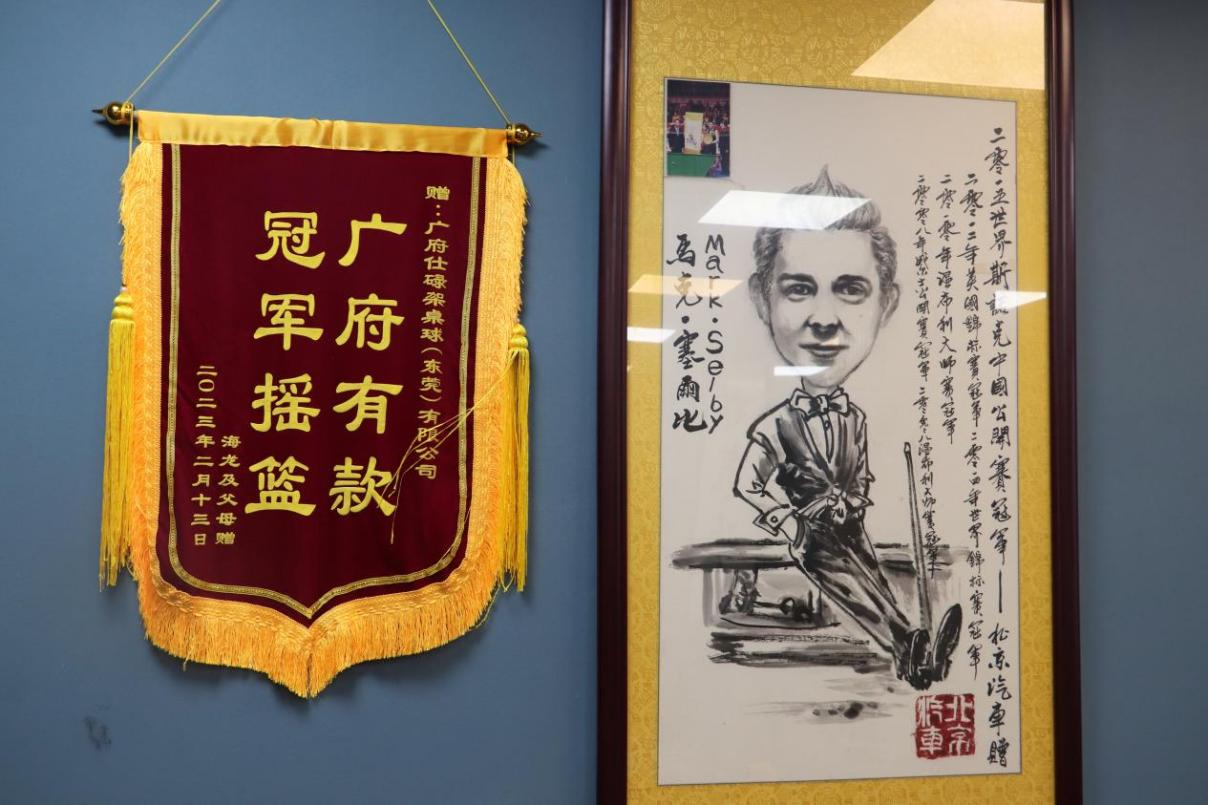 赠：广府仕碌架桌球（东莞）有限公司
广府有款
冠军摇篮
海龙及父母赠
二〇二三年二月十三日
二零一五世界斯諾克中國公開賽冠軍——北京汽車贈
二零一二年英國錦标賽冠軍二零一四年世界錦标賽冠軍
二零一零年温布利大师赛冠軍
二零零八年威尔士公開賽冠軍二零零八温布利大师賽冠軍
Mark·Selby
馬克·塞爾比
北京
汽車